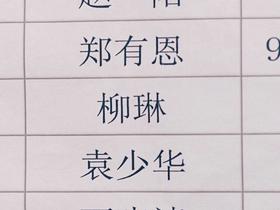 郑有恩 9
柳琳
袁少华